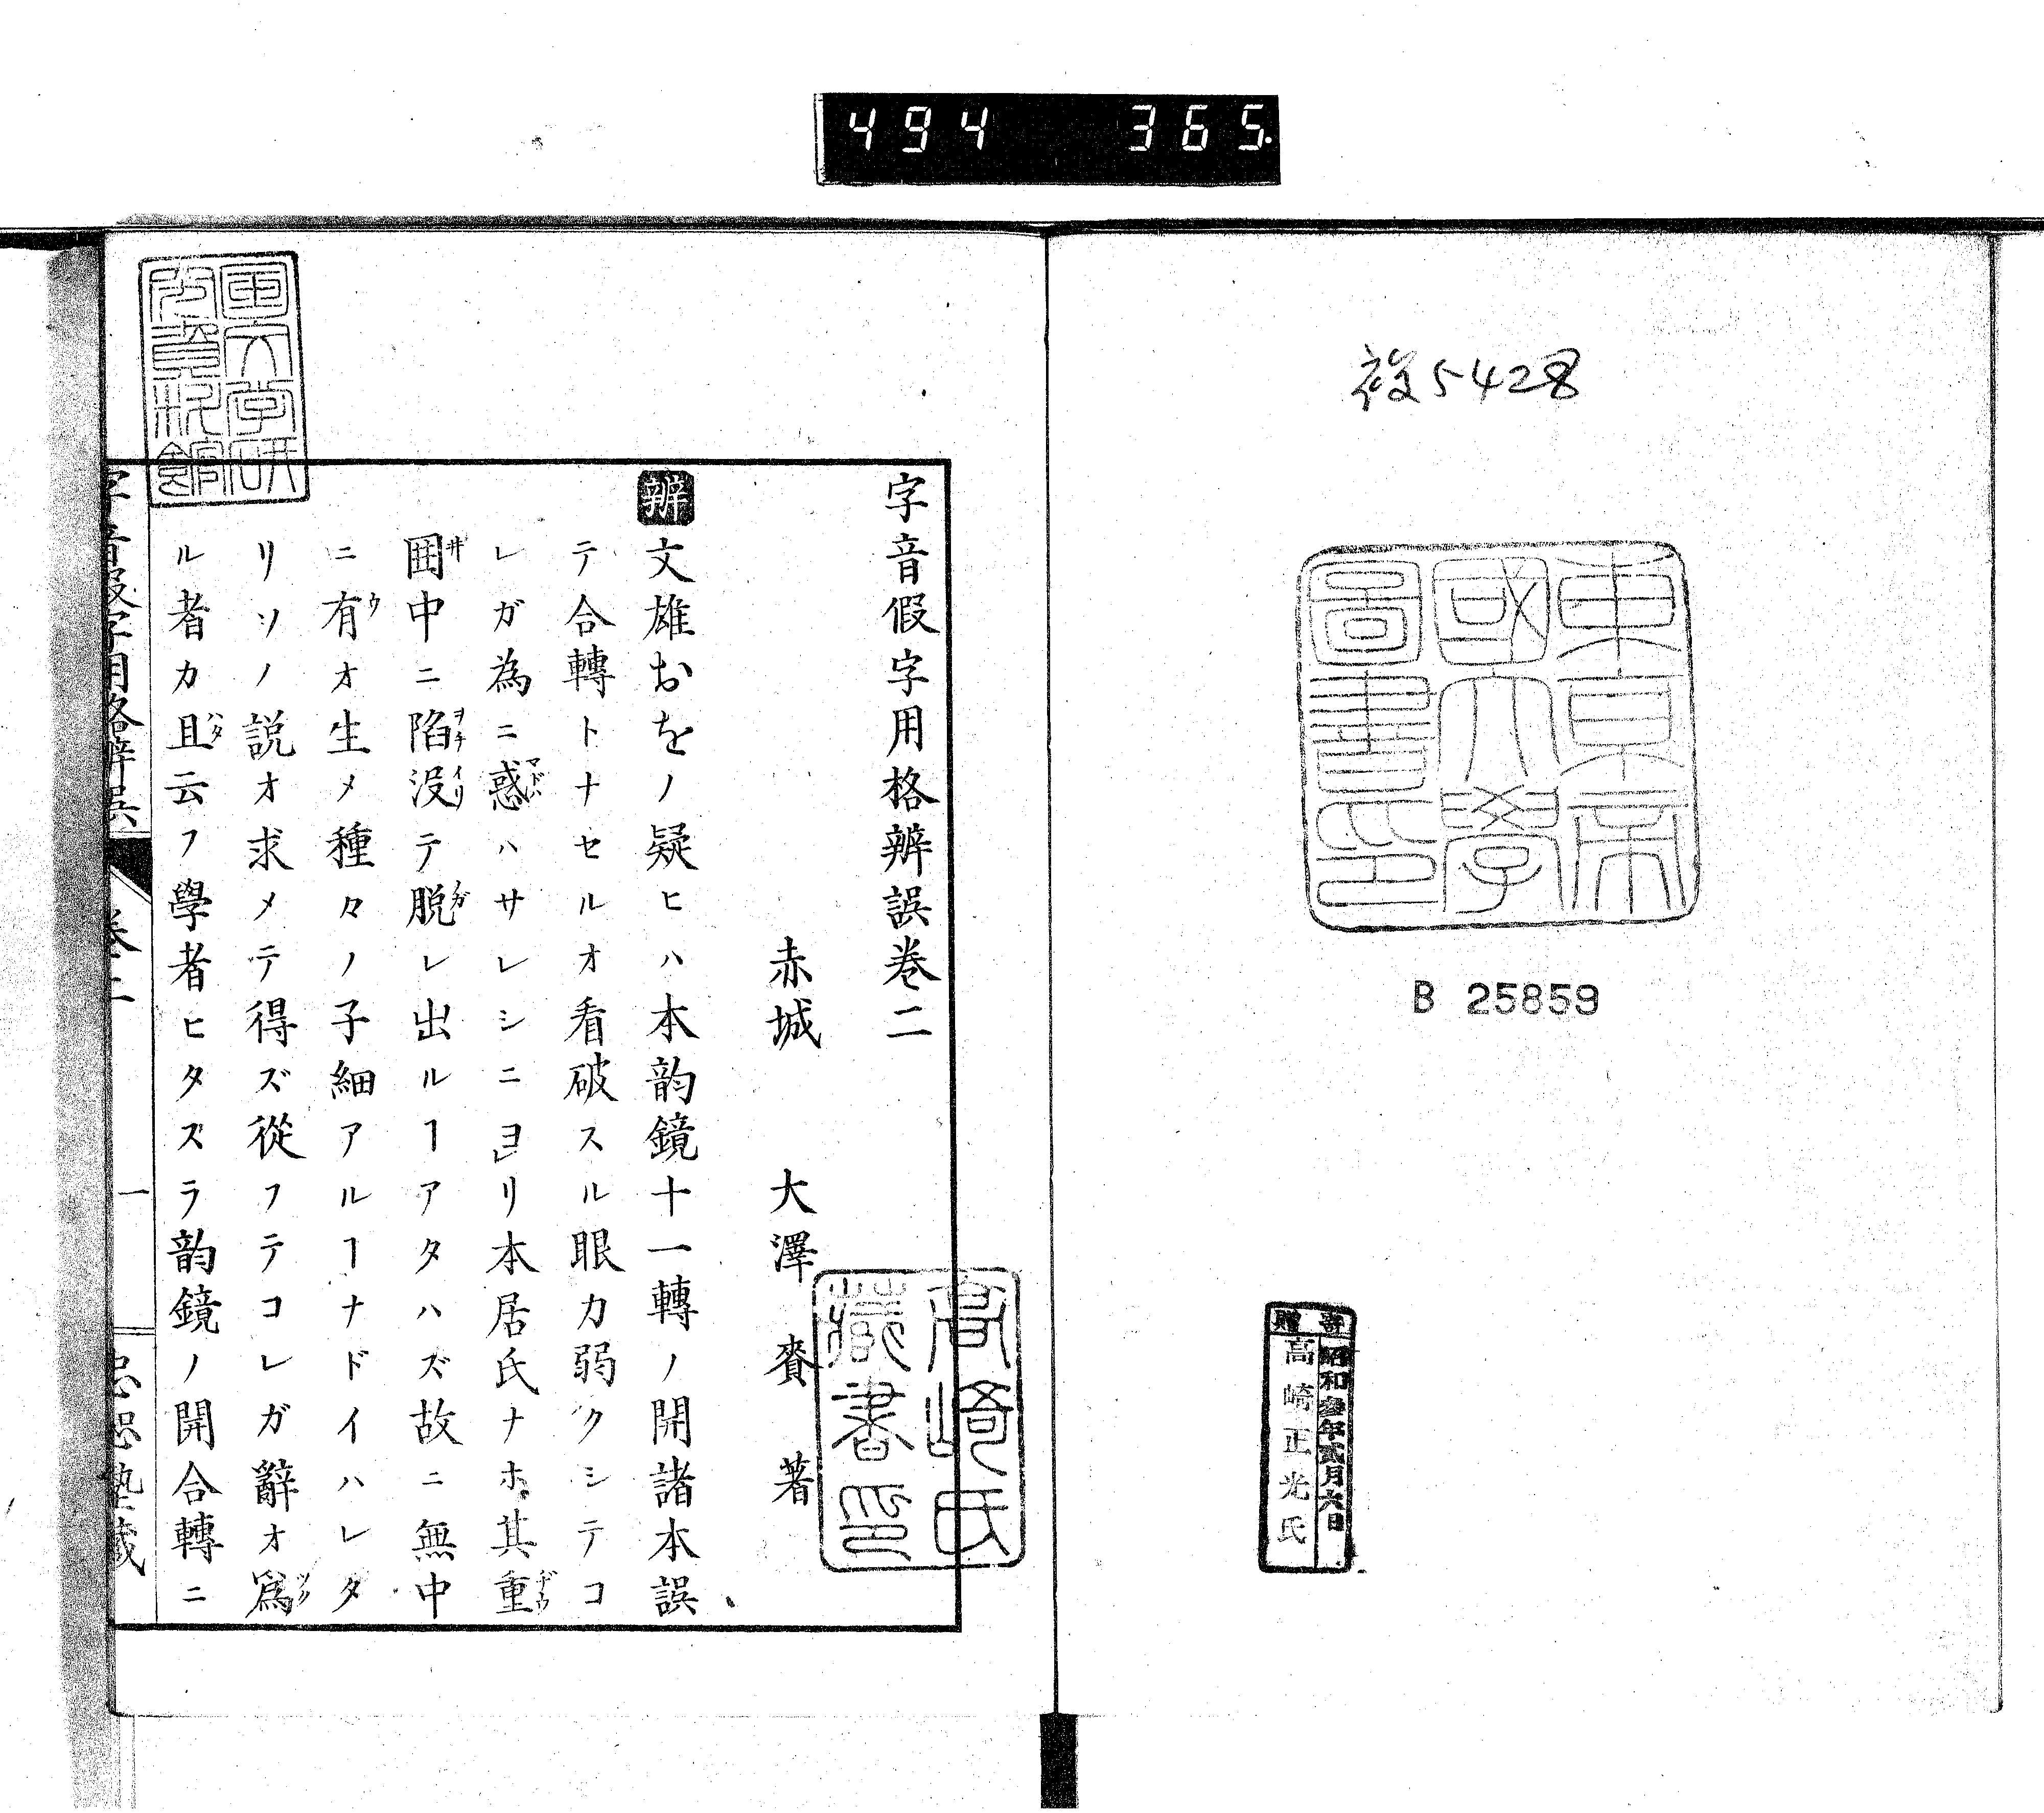 494 365.
複5428
東京帝
國大學
圖書印
B 25859
寄贈
昭和參年貳月六日
高崎正光氏
高崎氏
藏書印
字音假字用格辨誤卷二
赤城 大澤賚著
辨文雄おをノ疑ヒハ本韵鏡十一轉ノ開諸本誤
テ合轉トナセルオ看破スル眼カ弱クシテコ
レガ為ニ惑ハサレシニヨリ本居氏ナホ其重
囲中ニ陷没テ脱レ出ルヿアタハズ故ニ無中
ニ有オ生メ種々ノ子細アルヿナドイハレタ
リソノ説オ求メテ得ズ從フテコレガ辭オ爲
ル者カ且云フ學者ヒタスラ韵鏡ノ開合轉ニ
字音假字用格辨誤 卷二 一 忠恕塾藏
国文学研
究資料館